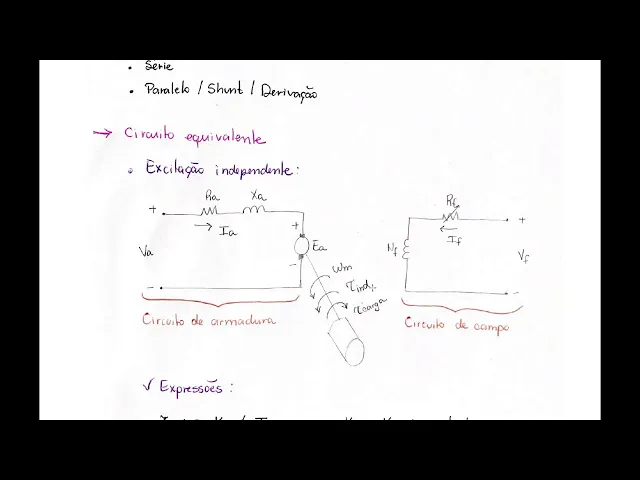 • Série
• Paralelo / Shunt / Derivação
→ Circuito equivalente
• Excitação independente:
+ Ra Xa
Ia
Va
-
+
Ea
-
ωm
τind
τcarga
Circuito de armadura
Rf
If
+
Nf
Vf
-
Circuito de campo
✓ Expressões: